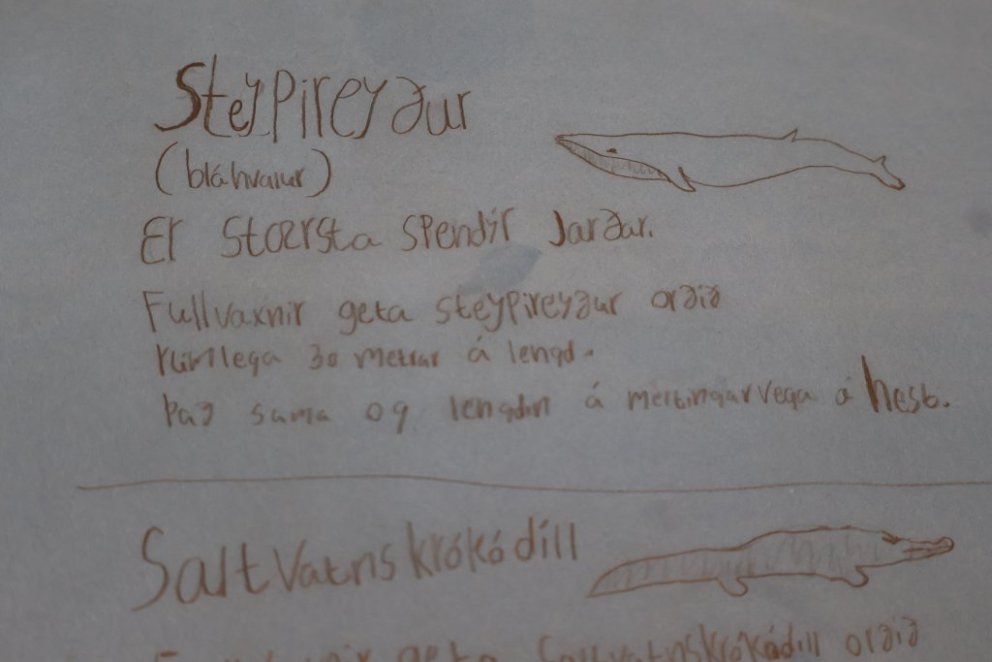 Steypireyður
(bláhvalur)
Er stærsta spendýr Jarðar.
Fullvaxnir geta steypireyður orðið
rúmlega 30 metrar á lengd.
Það sama og lengdin á meltingarvega á hest.
Saltvatnskrókódíll
geta Saltvatnskrókódíll orðið